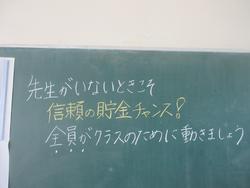 先生がいないときこそ
信頼の貯金チャンス!
全員がクラスのために動きましょう